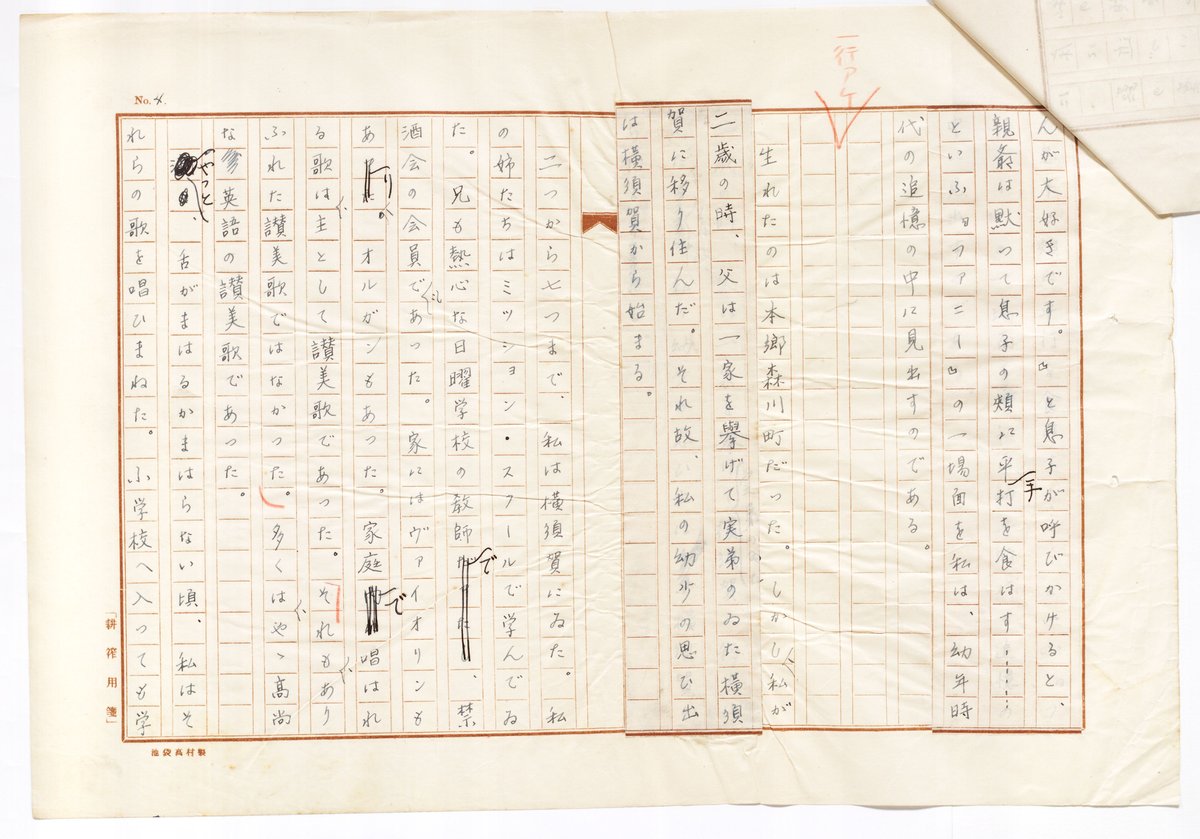 No. 4.
一行アケ
んが大好きです。」と息子が呼びかけると、
親爺は黙つて息子の頬に平手打を食はす……
といふ「ファニー」の一場面を私は、幼年時
代の追憶の中に見出すのである。
生れたのは本郷森川町だつた。しかし、私が
二歳の時、父は一家を挙げて実弟のゐた横須
賀に移り住んだ。それ故、私の幼少の思ひ出
は横須賀から始まる。
二つから七つまで、私は横須賀にゐた。私
の姉たちはミッション・スクールで学んでゐ
た。兄も熱心な日曜学校の教師で、禁
酒会の会員であつた。家にはヴァイオリンも
あり、オルガンもあつた。家庭で唱はれ
る歌は、主として讃美歌であつた。それも、あり
ふれた讃美歌ではなかつた。多くは、やゝ高尚
な英語の讃美歌であつた。
やっと、舌がまはるかまはらない頃、私はそ
れらの歌を唱ひまねた。小学校へ入つても学
「耕筰用箋」
池袋高村製